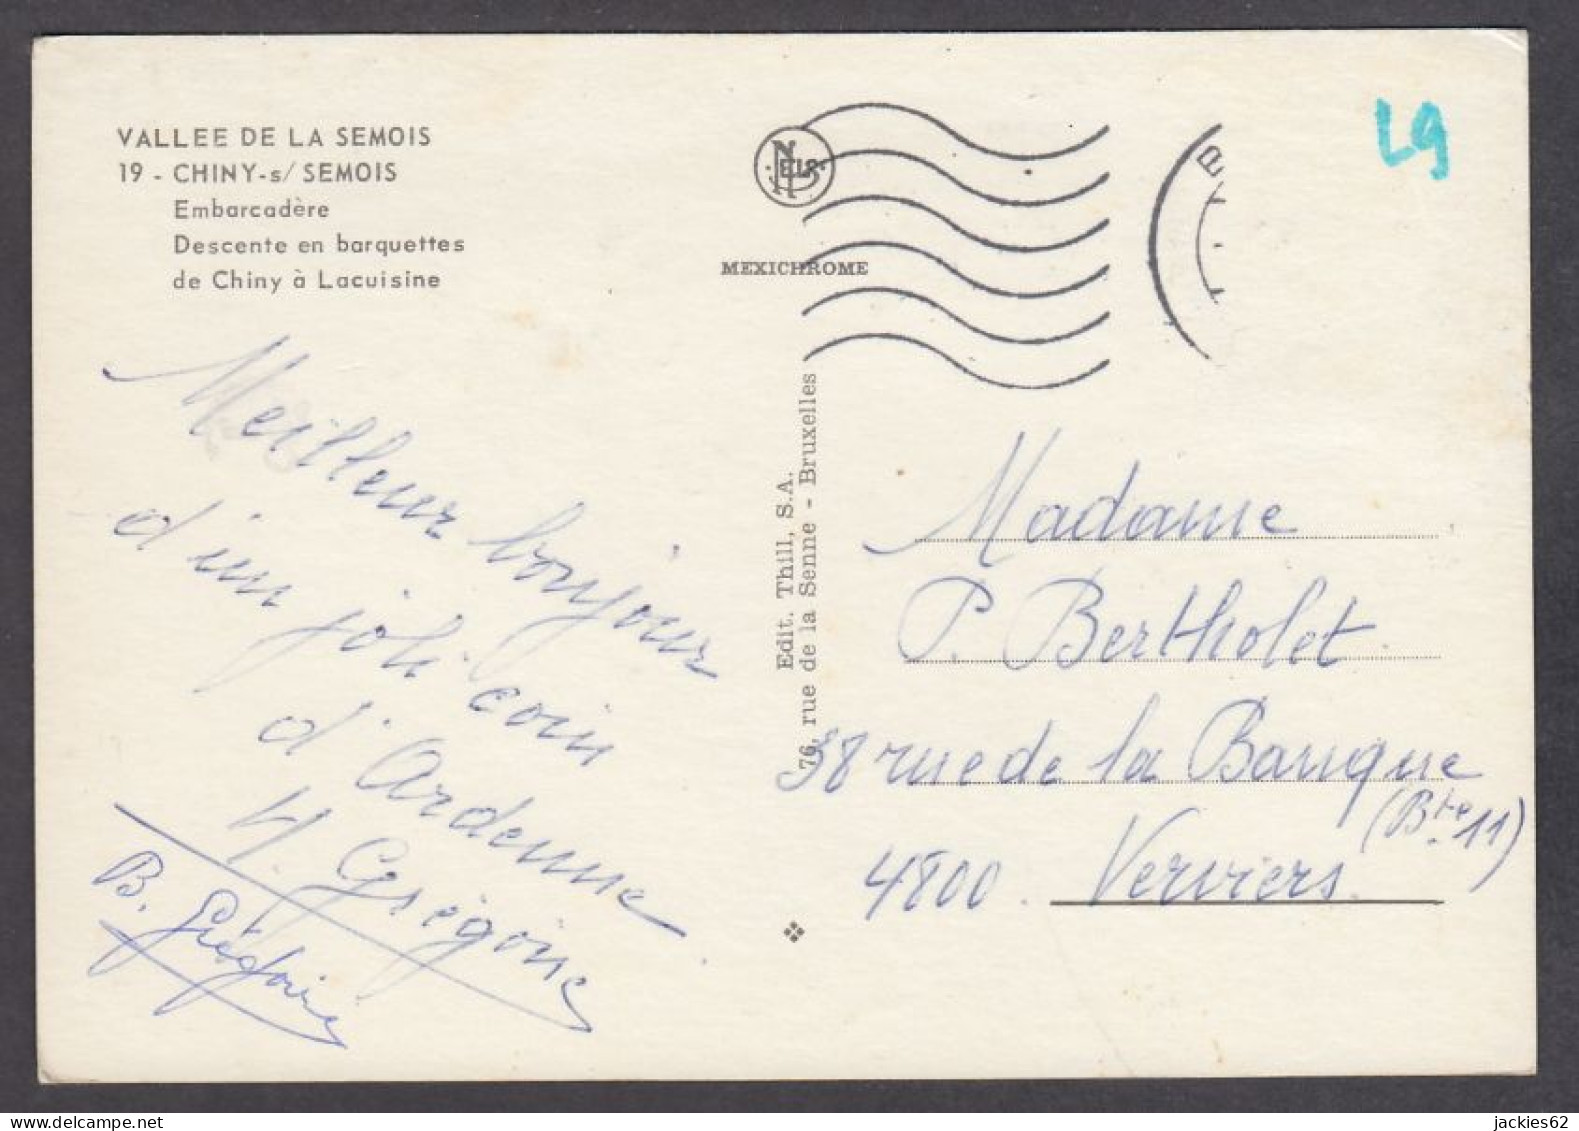 VALLEE DE LA SEMOIS
19 - CHINY-s/ SEMOIS
Embarcadère
Descente en barquettes
de Chiny à Lacuisine
NELS
MEXICHROME
L9
Meilleur bonjour
d'un joli coin
d'Ardenne
Grégoire
B. Grégoire
Edit. Thill, S.A.
76, rue de la Senne - Bruxelles
Madame
P. Bertholet
38 rue de la Banque
(Bte 11)
4800 Verviers
jackies62